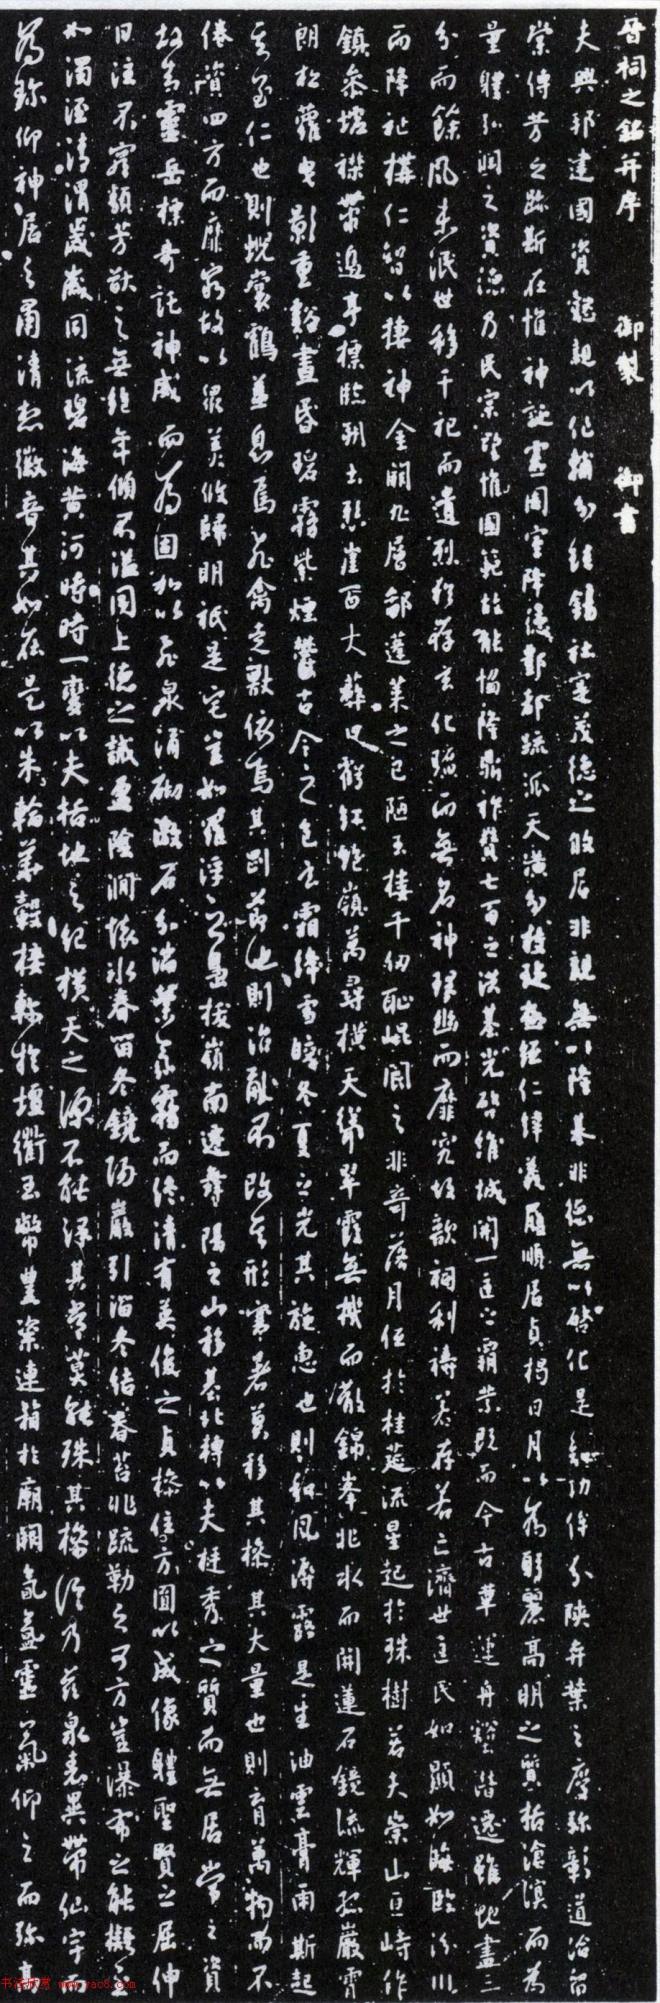 晉祠之銘并序 御製 御書
夫興邦建國資懿親以作輔分珪錫社寔茂德之攸居非親無以隆基非德無以啓化是知功侔分陝弈葉之慶弥彰道洽留
棠傳芳之跡斯在惟神誕靈周室降德酆都疏派天潢分枝璇極經仁緯義履順居貞揭日月以為躬麗高明之質括滄溟而為
量體弘潤之資德乃民宗望惟國範故能協隆鼎祚贊七百之洪基光啓維城開一匡之霸業既而今古革運舟壑潛遷雖地盡三
分而餘風未泯世移千祀而遺烈猶存玄化曠而無名神理幽而靡究故歆祠利禱若存若亡濟世匡民如顯如晦臨汾川
而降祉構仁智以棲神金闕九層鄙蓬萊之已陋玉樓千仞恥崐閬之非奇落月低於桂筵流星起於珠樹若夫崇山亘峙作
鎮參墟襟帶邊亭標臨朔土懸崖百丈蔽日虧紅絕嶺萬尋橫天聳翠霞無機而散錦峯非水而開蓮石鏡流輝孤巖宵
朗松蘿曳影重谿晝昏碧霧紫煙鬱古今之色玄霜絳雪皎冬夏之光其施惠也則和風溽露是生油雲膏雨斯起
其至仁也則蜺裳鶴蓋息焉飛禽走獸依焉其剛節也則治亂不改其形寒暑莫移其操其大量也則育萬物而不
倦資四方而靡窮故以眾美攸歸明祇是宅豈如羅浮之島拔嶺南遷舞陽之山移基北轉以夫挺秀之質而無居常之資
故知靈岳標奇託神威而為固加以飛泉涌砌激石分湍縈氛霧而終清有英俊之貞操住方圓以成像體聖賢之屈伸
日注不窮類芳猷之無絕年傾不溢同上德之誡盈陰澗懷冰春留冬鏡陽巖引溜冬結春苔非疏勒之可方豈瀑布之能擬至
如濁涇清渭歲歲同流碧海黃河時時一變以夫括地之紀橫天之源不能澤其常莫能殊其操信乃茲泉表異帶仙宇而
為珍仰神居之肅清想徽音其如在是以朱輪華轂接軫於壇衢玉幣豐粢連箱於廟闕氛氳靈氣仰之而弥高
书法欣赏 www.yac8.com